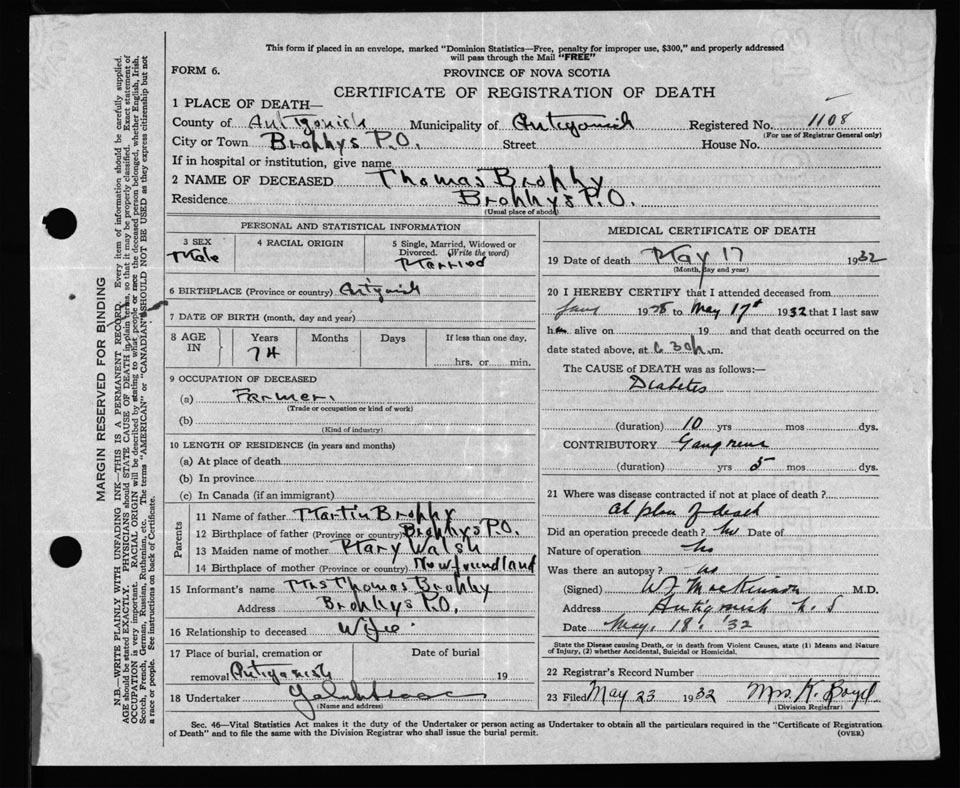 This form if placed in an envelope, marked "Dominion Statistics—Free, penalty for improper use, $300," and properly addressed
will pass through the Mail "FREE"
FORM 6.
PROVINCE OF NOVA SCOTIA
CERTIFICATE OF REGISTRATION OF DEATH
1 PLACE OF DEATH—
County of Antigonish Municipality of Antigonish Registered No. 1108
(For use of Registrar General only)
City or Town Brophys P.O. Street House No.
If in hospital or institution, give name
2 NAME OF DECEASED Thomas Brophy
Residence Brophys P.O.
(Usual place of abode)
PERSONAL AND STATISTICAL INFORMATION
3 SEX Male
4 RACIAL ORIGIN
5 Single, Married, Widowed or Divorced. (Write the word) Married
6 BIRTHPLACE (Province or country) Antigonish
7 DATE OF BIRTH (month, day and year)
8 AGE IN Years 74 Months Days If less than one day, hrs. or min.
9 OCCUPATION OF DECEASED
(a) Farmer.
(Trade or occupation or kind of work)
(b)
(Kind of industry)
10 LENGTH OF RESIDENCE (in years and months)
(a) At place of death
(b) In province
(c) In Canada (if an immigrant)
Parents
11 Name of father Martin Brophy
12 Birthplace of father (Province or country) Brophys P.O.
13 Maiden name of mother Mary Walsh
14 Birthplace of mother (Province or country) Newfoundland
15 Informant's name Mrs Thomas Brophy
Address Brophys P.O.
16 Relationship to deceased Wife.
17 Place of burial, cremation or Date of burial
removal Antigonish 19
18 Undertaker
(Name and address)
MEDICAL CERTIFICATE OF DEATH
19 Date of death May 17 1932
(Month, day and year)
20 I HEREBY CERTIFY that I attended deceased from
Jany 19 to May 17th 1932 that I last saw
h alive on 19 and that death occurred on the
date stated above, at 6 30 m.
The CAUSE of DEATH was as follows:—
Diabetes
(duration) 10 yrs mos dys.
CONTRIBUTORY Gangrene
(duration) yrs 5 mos dys.
21 Where was disease contracted if not at place of death?
At place of death
Did an operation precede death? No Date of
Nature of operation No
Was there an autopsy? No
(Signed) MacKinnon M.D.
Address Antigonish N.S
Date May. 18. '32
State the Disease causing Death, or in death from Violent Causes, state (1) Means and Nature
of Injury, (2) whether Accidental, Suicidal or Homicidal.
22 Registrar's Record Number
23 Filed May 23 1932 Mrs. K. Boyd
(Division Registrar)
Sec. 46—Vital Statistics Act makes it the duty of the Undertaker or person acting as Undertaker to obtain all the particulars required in the "Certificate of Registration
of Death" and to file the same with the Division Registrar who shall issue the burial permit.
(OVER)
MARGIN RESERVED FOR BINDING
N.B.—WRITE PLAINLY WITH UNFADING INK—THIS IS A PERMANENT RECORD. Every item of information should be carefully supplied.
AGE should be stated EXACTLY. PHYSICIANS should STATE CAUSE OF DEATH in plain terms, so that it may be properly classified. Exact statement of
OCCUPATION is very important. RACIAL ORIGIN will be described by stating to what people or race the deceased person belonged, whether English, Irish,
Scotch, French, German, Russian, Ruthenian, etc. The terms "AMERICAN" or "CANADIAN" SHOULD NOT BE USED as they express citizenship but not
a race or people. See instructions on back of Certificate.